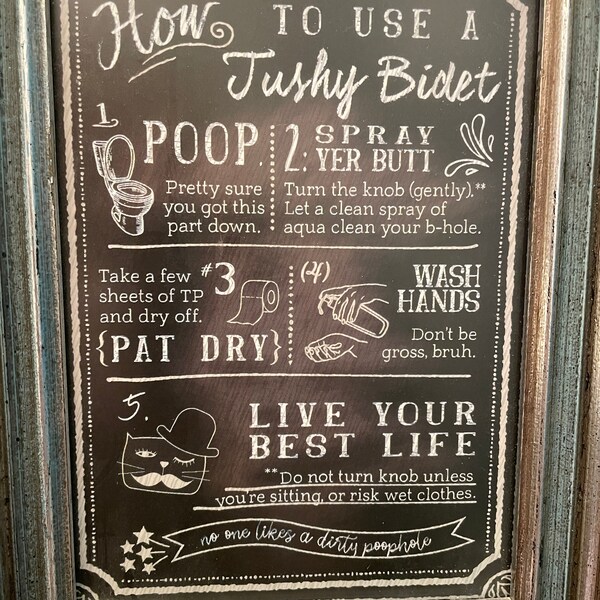 How TO USE A
Tushy Bidet
1.
POOP.
Pretty sure
you got this
part down.
2: SPRAY
YER BUTT
Turn the knob (gently).**
Let a clean spray of
aqua clean your b-hole.
Take a few
sheets of TP
and dry off.
#3
{PAT DRY}
(4)
WASH
HANDS
Don't be
gross, bruh.
5.
LIVE YOUR
BEST LIFE
**Do not turn knob unless
you're sitting, or risk wet clothes.
no one likes a dirty poophole